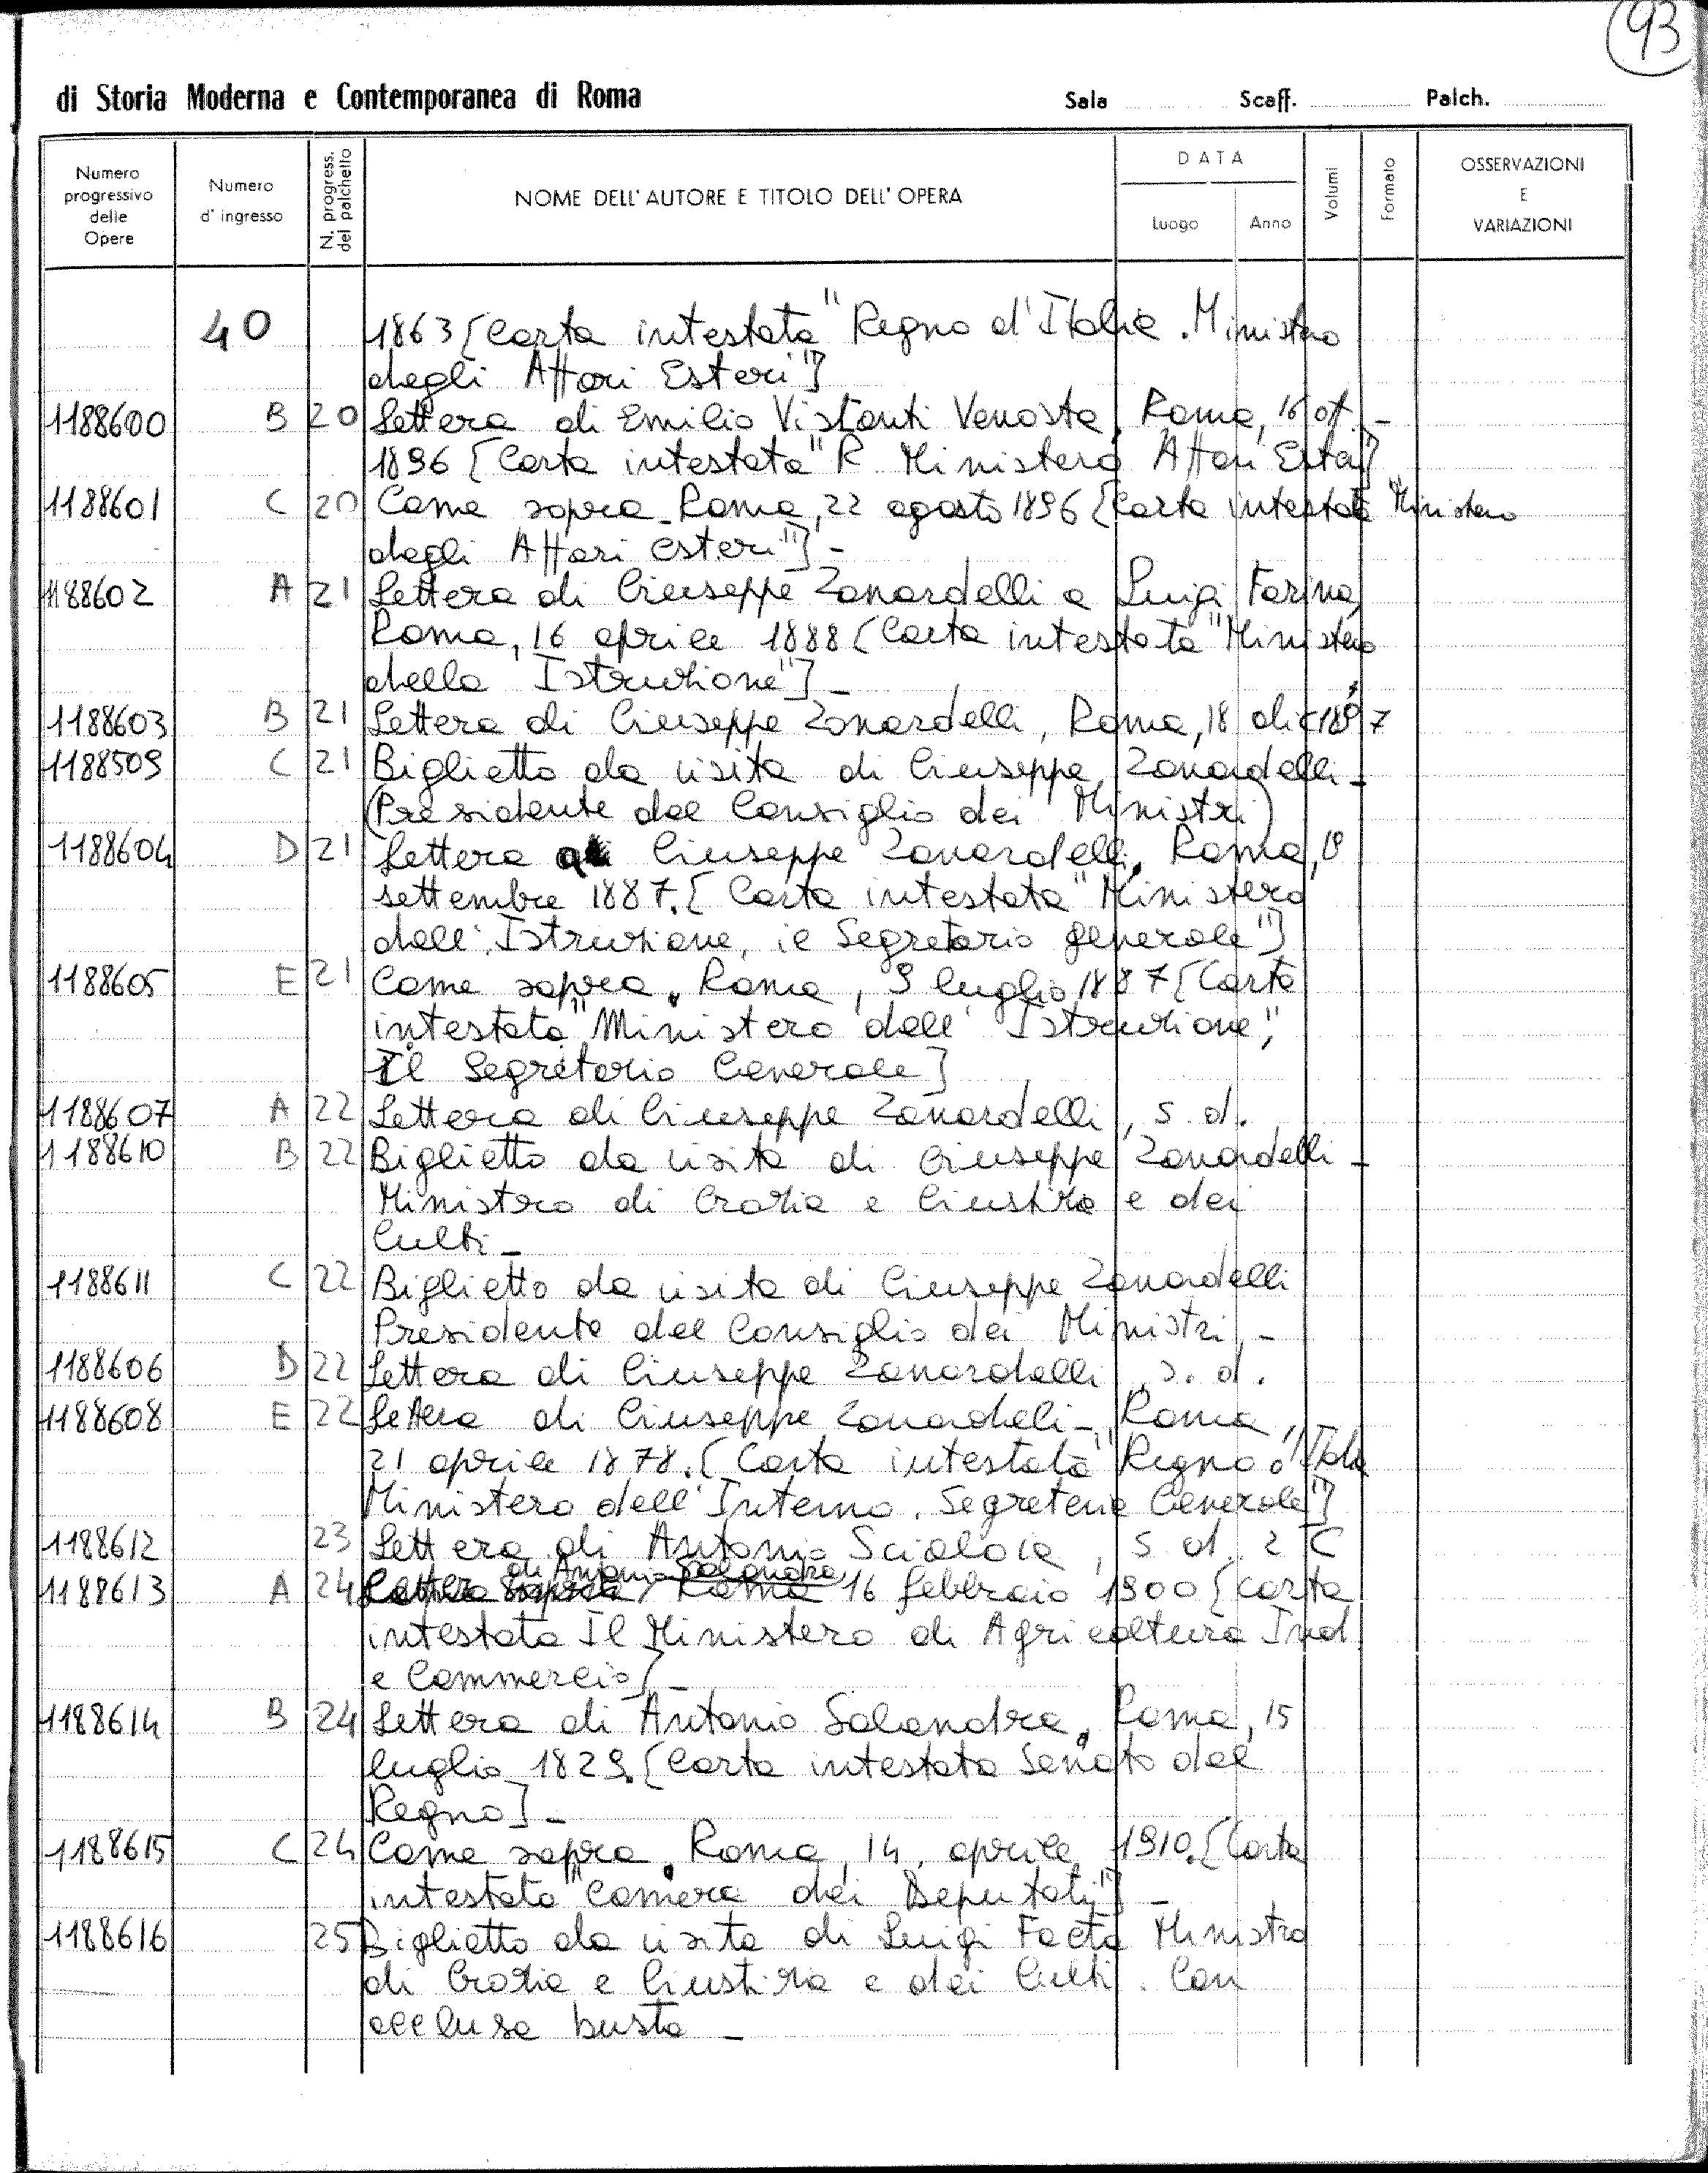 93
di Storia Moderna e Contemporanea di Roma Sala Scaff. Palch.
Numero progressivo delle Opere
Numero d' ingresso
N. progress. del palchetto
NOME DELL' AUTORE E TITOLO DELL' OPERA
DATA
Luogo Anno
Volumi
Formato
OSSERVAZIONI E VARIAZIONI
40 1863 [Carta intestata "Regno d'Italia. Ministero
degli Affari Esteri"]
1188600 B 20 Lettera di Emilio Visconti Venosta, Roma, 16 ott. -
1896 [Carta intestata "R. Ministero Affari Esteri"]
1188601 C 20 Come sopra - Roma, 22 agosto 1896 [Carta intestata "Ministero
degli Affari esteri"] -
1188602 A 21 Lettera di Giuseppe Zanardelli a Luigi Farina,
Roma, 16 aprile 1888 [Carta intestata "Ministero
della Istruzione"] -
1188603 B 21 Lettera di Giuseppe Zanardelli, Roma, 18 dic 1897
1188509 C 21 Biglietto da visita di Giuseppe Zanardelli -
(Presidente del Consiglio dei Ministri)
1188604 D 21 Lettera Giuseppe Zanardelli, Roma,
settembre 1887. [Carta intestata "Ministero
dell'Istruzione, il Segretario generale"]
1188605 E 21 Come sopra. Roma, 9 luglio 1887 [Carta
intestata "Ministero dell'Istruzione",
Il Segretario Generale]
1188607 A 22 Lettera di Giuseppe Zanardelli, s. d.
1188610 B 22 Biglietto da visita di Giuseppe Zanardelli -
Ministro di Grazia e Giustizia e dei
Culti -
1188611 C 22 Biglietto da visita di Giuseppe Zanardelli
Presidente del Consiglio dei Ministri. -
1188606 D 22 Lettera di Giuseppe Zanardelli, s. d.
1188608 E 22 Lettera di Giuseppe Zanardeli - Roma,
21 aprile 1878. [Carta intestata "Regno d'Italia
Ministero dell'Interno. Segreteria Generale"]
1188612 23 Lettera di Antonio Scialoia, s. d. 2 C
di Antonio Salandra,
1188613 A 24 16 febbraio 1900 [Carta
intestata Il Ministero di Agricoltura Ind
e Commercio] -
1188614 B 24 Lettera di Antonio Salandra. Roma, 15
luglio 1829. [Carta intestata Senato del
Regno] -
1188615 C 24 Come sopra. Roma, 14, aprile 1910. [Carta
intestata "Camera dei Deputati"] -
1188616 25 Biglietto da visita di Luigi Facta Ministro
di Grazia e Giustizia e dei Culti. Con
acclusa busta -